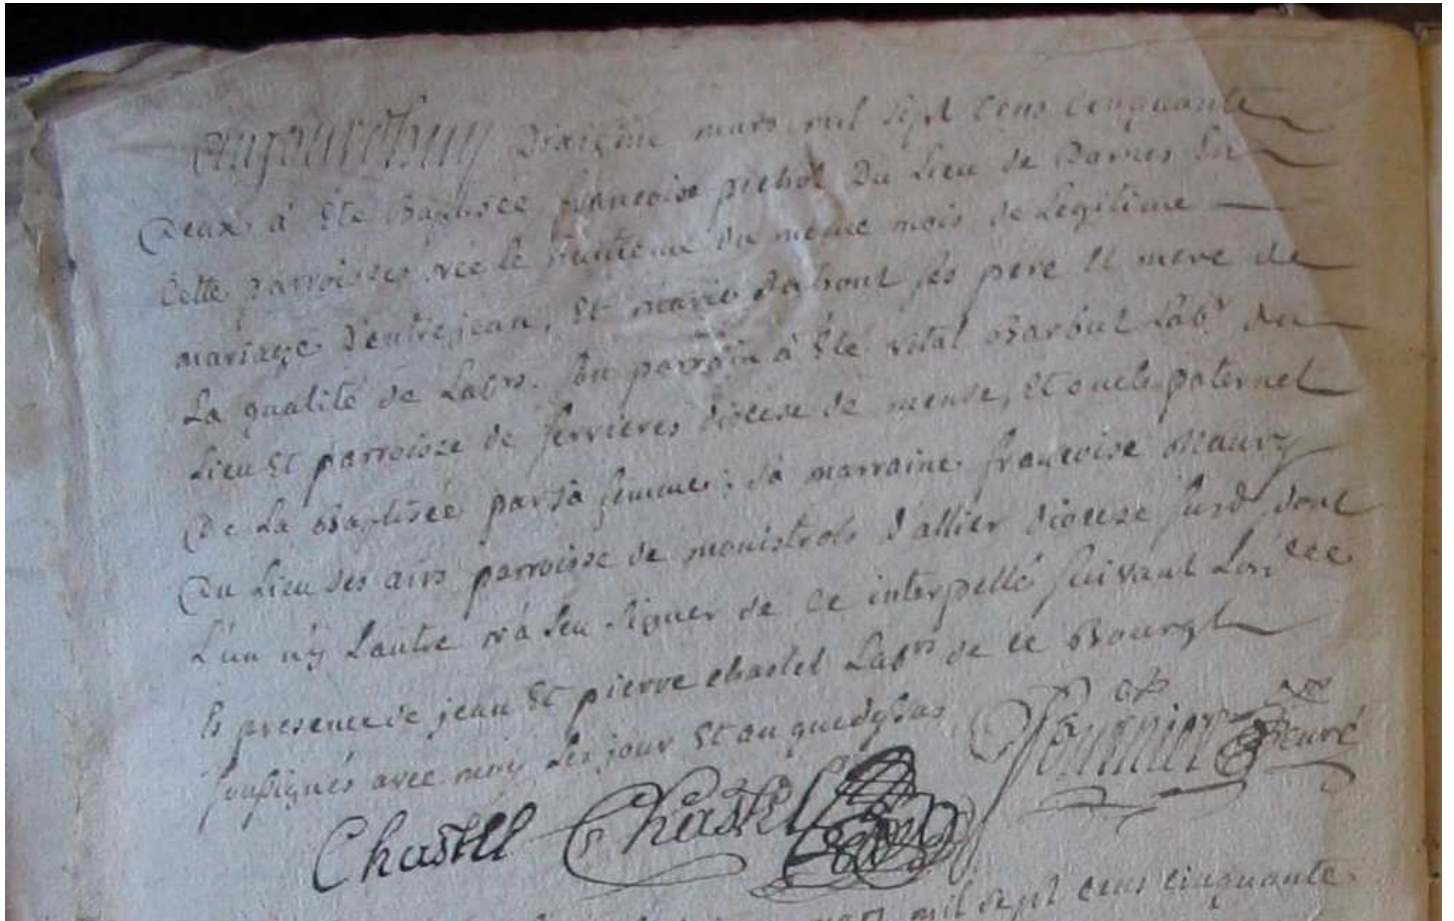 aujourdhuy dixiême mars mil sept cens cinquante
Deux à été Baptisée françoise pichot Du Lieu de Darnes Su
Cette parroisse, née le huitieme du même mois de Legitime
mariage D'entre jean, Et marie Dahont ses pere Et mere de
La qualité de Labrs. Son parrain à Eté vital Barbut Labr du
Lieu Et parroisse de ferrieres diocese de mende, Et oncle paternel
De La Baptisée par sà femme; Sa marraine françoise Maury
Du Lieu des airs parroisse de monistrols d'allier diocese susd. dont
L'un n'y Lautre n'a Seu Signer de Ce interpellé suivant Lordce
Es presence de jean Et pierre chastel Labrs de ce Bourgt
soussignés avec moy Les jour Et an que dessus
Chastel Chastel Fournier Curé
mil sept cens cinquante